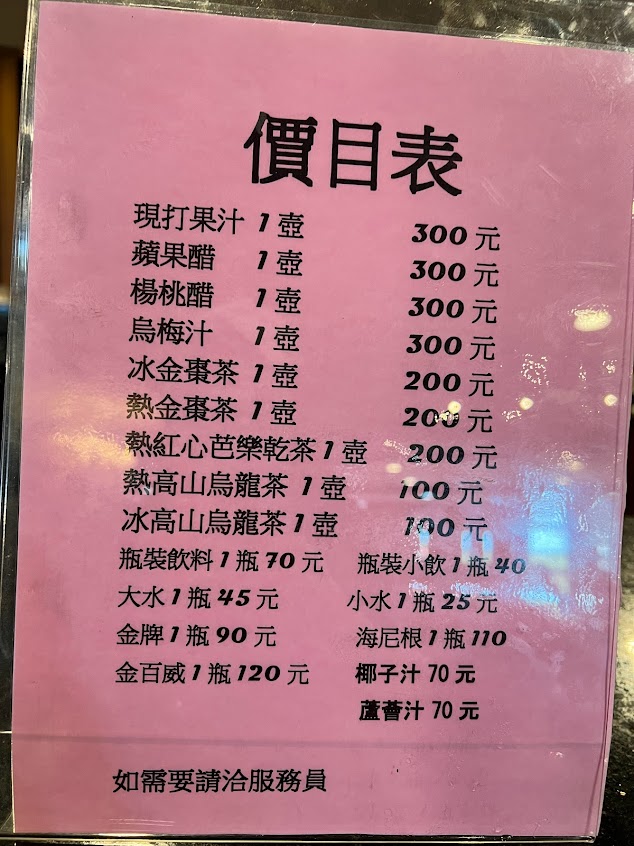 價目表
現打果汁 1 壺 300 元
蘋果醋 1 壺 300 元
楊桃醋 1 壺 300 元
烏梅汁 1 壺 300 元
冰金棗茶 1 壺 200 元
熱金棗茶 1 壺 200 元
熱紅心芭樂乾茶 1 壺 200 元
熱高山烏龍茶 1 壺 100 元
冰高山烏龍茶 1 壺 100 元
瓶裝飲料 1 瓶 70 元 瓶裝小飲 1 瓶 40
大水 1 瓶 45 元 小水 1 瓶 25 元
金牌 1 瓶 90 元 海尼根 1 瓶 110
金百威 1 瓶 120 元 椰子汁 70 元
蘆薈汁 70 元
如需要請洽服務員